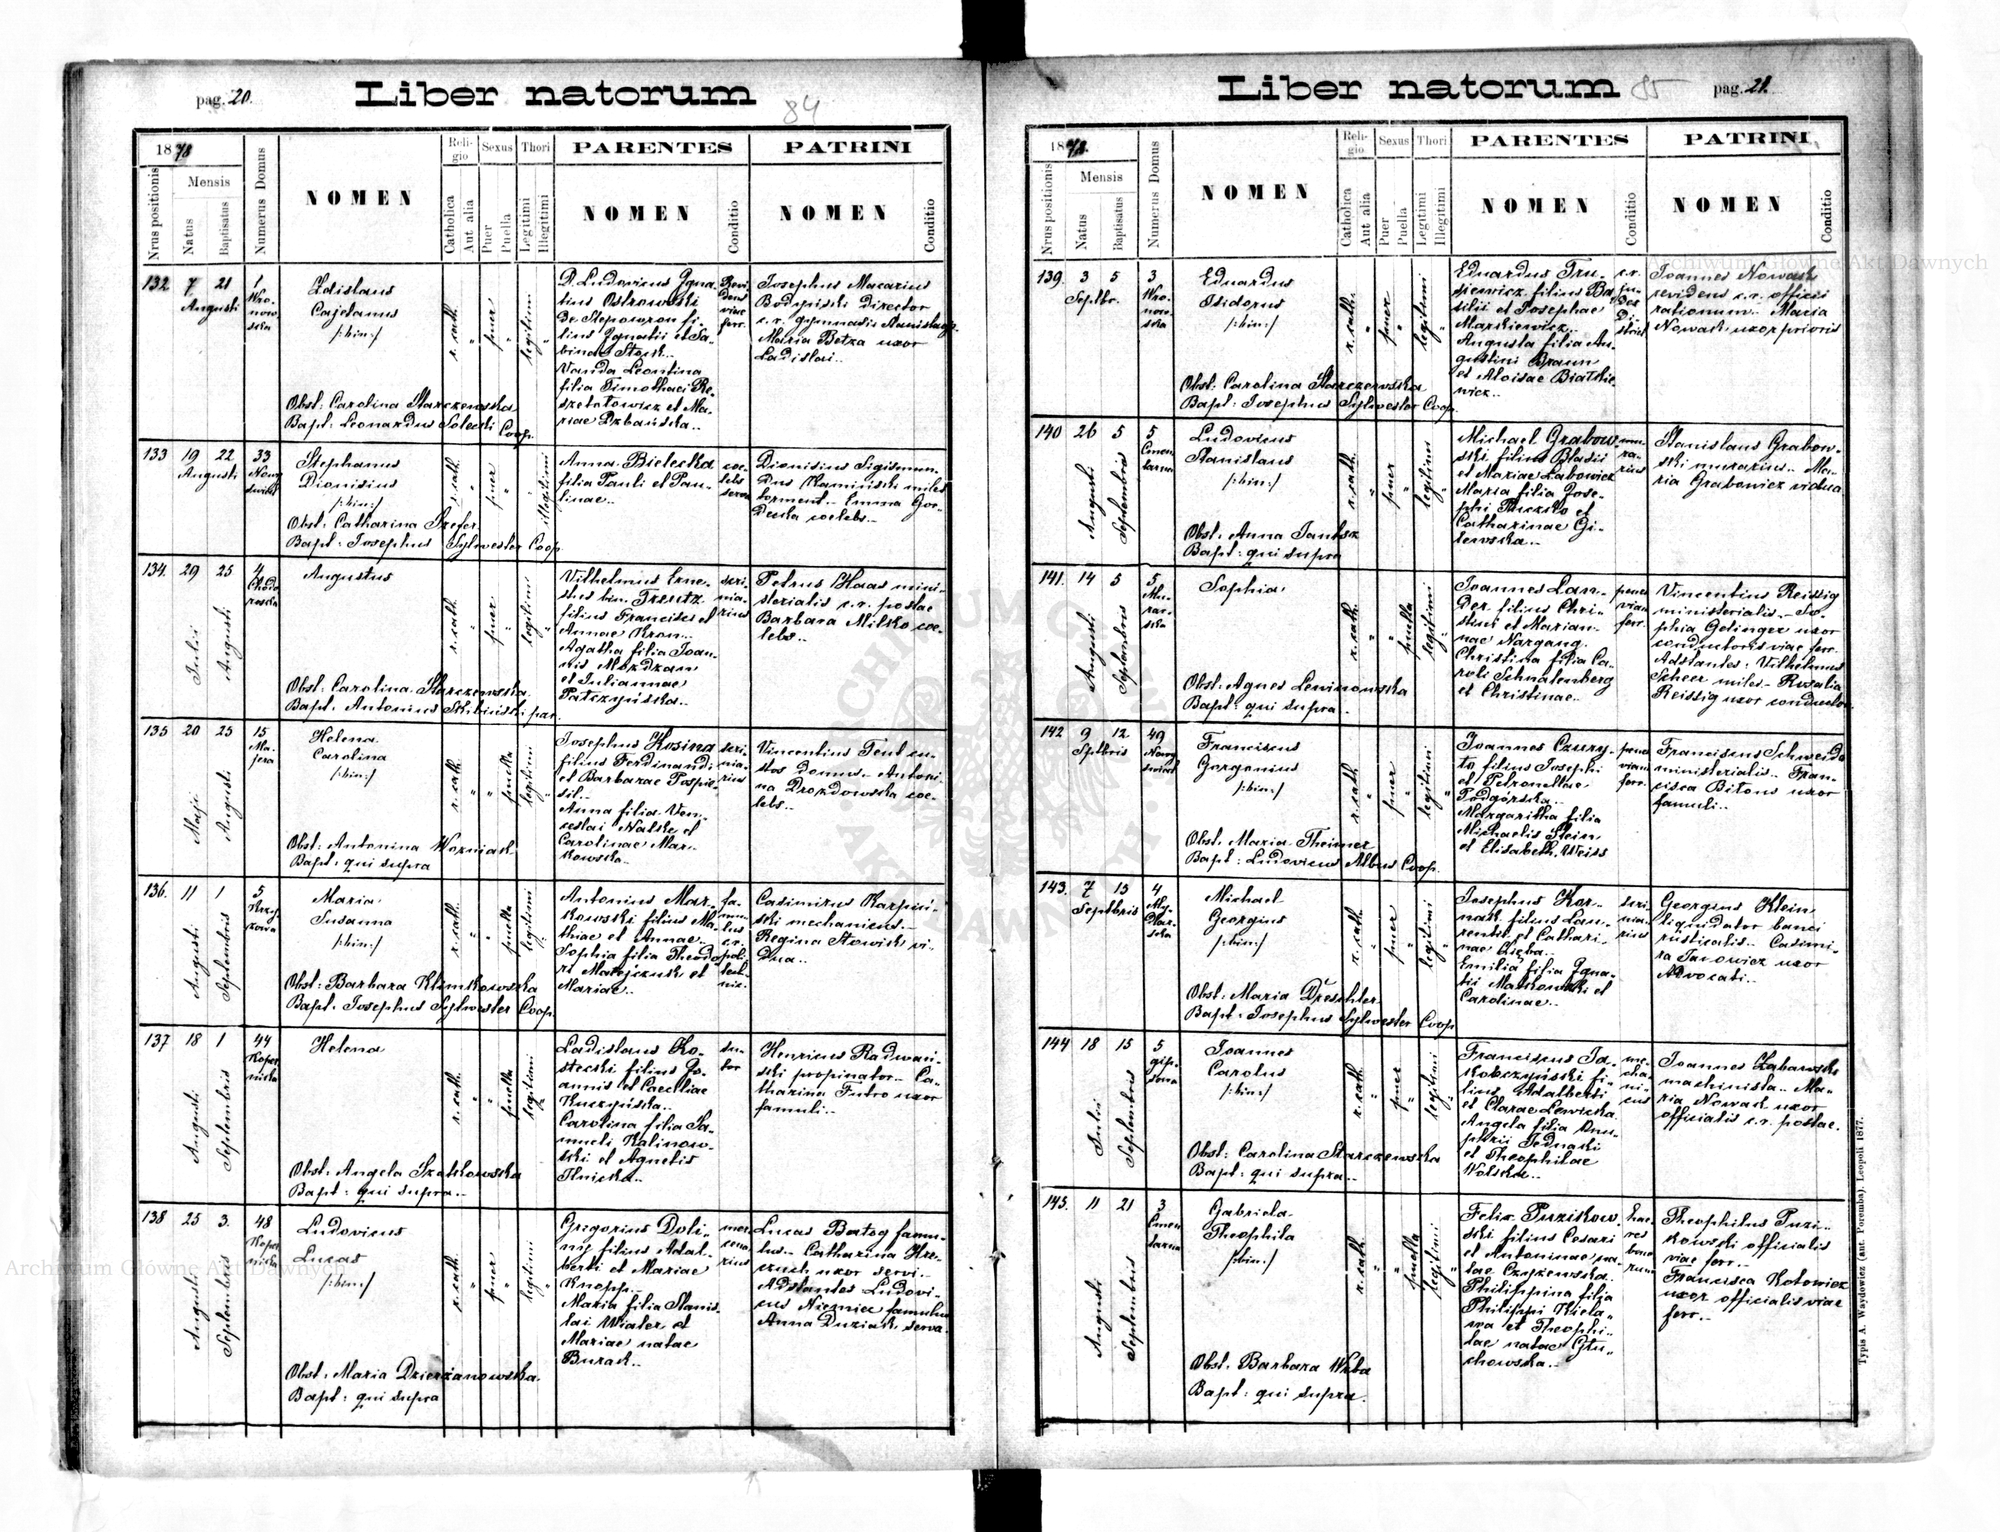 pag. 20.
Liber natorum
84
1878
Mensis
Nrus positionis
Natus
Baptisatus
Numerus Domus
NOMEN
Religio
Catholica
Aut alia
Sexus
Puer
Puella
Thori
Legitimi
Illegitimi
PARENTES
NOMEN
Conditio
PATRINI
NOMEN
Conditio
132
7
21
Augusti
1
Wro-
now-
ska
Ladislaus
Cajetanus
/:bin:/
Obst: Carolina Starczewska
Bapt: Leonardus Solecki Coop.
r. cath.
puer
legitimi
D. Ludovicus Igna-
tius Ostrowski
filia Timothaei Re-
szetatowicz et Ma-
Josephus Macarius
Director
c.r. gymnasii
Maria Betza uxor
Ladislai..
133
19
22
Augusti
33
Nowy
swiat
Stephanus
Dionisius
/:bin:/
Obst: Catharina Szefer
Bapt: Josephus Sylwester Coop.
r. cath.
puer
illegitimi
Anna Bielecka
filia Pauli et Pau-
linae..
coe-
lebs
serva
Dionisius Sigismun-
dus Kaminski miles
torment.. Emma Gor-
decka coelebs..
134.
29
25
Julii
Augusti
4
Augustus
Obst: Carolina Starczewska
Bapt: Antonius
r. cath.
puer
legitimi
Vilhelmus Erne-
stus bin. Trentz
filius Francisci et
Annae Kron..
Agatha filia Joan-
nis Mozdzan
et Juliannae
Patczyńska..
Petrus Haas mini-
sterialis c.r. postae
Barbara Milko coe-
lebs..
135
20
25
Maji
Augusti
15
Ma-
jera
Helena
Carolina
/:bin:/
Obst: Antonina Wozniak
Bapt: qui supra
r. cath.
puella
legitimi
Josephus Kosina
filius Ferdinandi
et Barbarae Pospie-
sil..
Anna filia Ven-
ceslai Natske et
Carolinae Mar-
kowska..
Vincentius Teut cu-
stos domus.. Antoni-
na Drozdowska coe-
lebs..
136.
11
1
Augusti
Septembris
5
Krzy-
zowa
Maria
Susanna
/:bin:/
Obst: Barbara Klimkowska
Bapt: Josephus Sylwester Coop.
r. cath.
puella
legitimi
Antonius Mar-
kowski filius Ma-
thiae et Annae..
Sophia filia Theodo-
ri Matejczuk et
Mariae..
fa-
mu-
lus
c.r.
poli-
tech-
nic.
Casimirus Karpiń-
ski mechanicus..
Regina Stowik vi-
dua..
137
18
1
Augusti
Septembris
44
Koper-
nicka
Helena
Obst: Angela Szatkowska
Bapt: qui supra..
r. cath.
puella
legitimi
Ladislaus Ko-
stecki filius Jo-
annis et Caeciliae
Kuczyńska..
Carolina filia Sa-
mueli Kalinow-
ski et Agnetis
Ilnicka..
su-
tor
Henricus Radwań-
ski propinator.. Ca-
tharina Futro uxor
famuli..
138
25
3.
Augusti
Septembris
48
Koper-
nicka
Ludovicus
Lucas
/:bin:/
Obst: Maria Dzierżanowska.
Bapt: qui supra
r. cath.
puer
legitimi
Grigorius Doli-
ny filius Adal-
berti et Mariae
Knopp..
Maria filia Stanis-
lai Wiater et
Mariae natae
Burak..
mer-
cena-
rius
Lucas Batog famu-
lus.. Catharina Hre-
czuch uxor servi..
Adstantes Ludovi-
cus Niemiec famulus
Anna Duziak serva.
Liber natorum
85
pag. 21.
1878.
Mensis
Nrus positionis
Natus
Baptisatus
Numerus Domus
NOMEN
Religio
Catholica
Aut alia
Sexus
Puer
Puella
Thori
Legitimi
Illegitimi
PARENTES
NOMEN
Conditio
PATRINI
NOMEN
Conditio
139.
3
5
Septbr.
3
Wro-
now-
ska
Eduardus
Isidorus
/:bin:/
Obst: Carolina Starczewska
Bapt: Josephus Sylwester Coop.
r. cath.
puer
legitimi
Eduardus Tru-
siewicz filius Ba-
silii et Josephae
Markiewicz..
Augusta filia Au-
gustini Braun
et Aloisae Biatkie-
wicz..
c.r.
ju-
dex
Di-
strict
Joannes Nowak
revidens c.r. officii
rationum.. Maria
Nowak uxor prioris
140
26
5
Augusti
Septembris
5
Cmen-
tarna
Ludovicus
Stanislaus
/:bin:/
Obst: Anna
Bapt: qui supra
r. cath.
puer
legitimi
Michael Grabow-
ski filius Blasii
et Mariae Labowicz
Maria filia Jose-
phi
Catharinae Gi-
lewska..
mu-
ra-
rius
Stanislaus Grabow-
ski murarius.. Ma-
ria Grabowicz vidua
141.
14
5
Augusti
Septembris
5
Mu-
rar-
ska
Sophia
Obst: Agnes Lewinowska
Bapt: qui supra..
r. cath.
puella
legitimi
Joannes Lan-
der filius Chri-
stini et Marian-
nae Nargang.
Christina filia Ca-
roli Schnalenberg
et Christinae..
Vincentius Reissig
ministerialis.. So-
phia Gelinger uxor
conductoris viae ferr.
Adstantes: Vilhelmus
Scheer miles.. Rosalia
Reissig uxor conductor.
142
9
12.
Sptbris
49
Nowy
swiat
Franciscus
Gorgonius
/:bin:/
Obst: Maria Theimer
Bapt: Ludovicus Albus Coop.
r. cath.
puer
legitimi
Joannes Czury-
to filius Josephi
et Petronellae
Podgórska..
Margaritha filia
Michaelis Stein
et Elisabeth. Weiss
Franciscus Schweido
ministerialis.. Fran-
cisca Bitous uxor
famuli..
143.
7
15
Septbris
4
Mły-
nar-
ska
Michael
Georgius
/:bin:/
Obst: Maria Dreschler
Bapt: Josephus Sylwester Coop.
r. cath.
puer
legitimi
Josephus Kor-
nak filius Lau-
rentii et Cathari-
nae Lięba..
Emilia filia Igna-
tii Matkowski et
Carolinae..
scri-
nia-
rius
Georgius Klein
liquidator banci
rusticalis.. Casimi-
ra Janowicz uxor
Advocati..
144
18
15
Julii
Septembris
5
gip-
sowa
Joannes
Carolus
/:bin:/
Obst: Carolina Starczewska
Bapt: qui supra..
r. cath.
puer
legitimi
Franciscus Ja-
kobczyński fi-
lius Adalberti
et Clarae Lewicka
Angela filia Onu-
phrii Jednaki
et Theophilae
Wolska..
me-
cha-
ni-
cus
Joannes Zabawski
machinista.. Ma-
ria Nowak uxor
officialis c.r. postae.
145.
11
21
Augusti
Septembris
3
Cmen-
tarna
Gabriela
Theophila
/:bin:/
Obst: Barbara Wrba
Bapt: qui supra.
r. cath.
puella
legitimi
Felix Puzikow-
ski filius Cesari
et Antoninae na-
tae Czyzewska.
Philippina filia
Philippi Kiela-
wa et Theophi-
lae natae Głu-
chowska..
Theophilus Puzi-
kowski officialis
viae ferr..
Francisca Kotowicz
uxor officialis viae
ferr..
Typis A. Waydowicz (ant. Poremba) Leopoli 1877.
Archiwum Główne Akt Dawnych
Archiwum Główne Akt Dawnych
ARCHIWUM GŁÓWNE AKT DAWNYCH